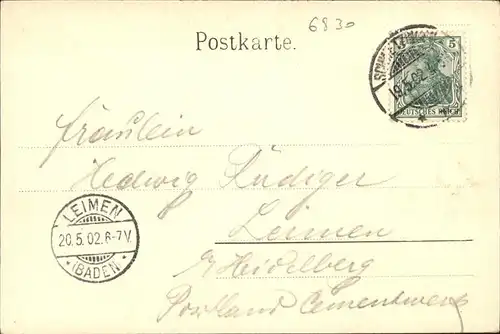 6830
Postkarte.
5
19.5.02
DEUTSCHES REICH
Fräulein
Hedwig Rüdiger
Leimen
b/Heidelberg
Portland Cementwerk
LEIMEN
20.5.02.6-7V.
* (BADEN) *